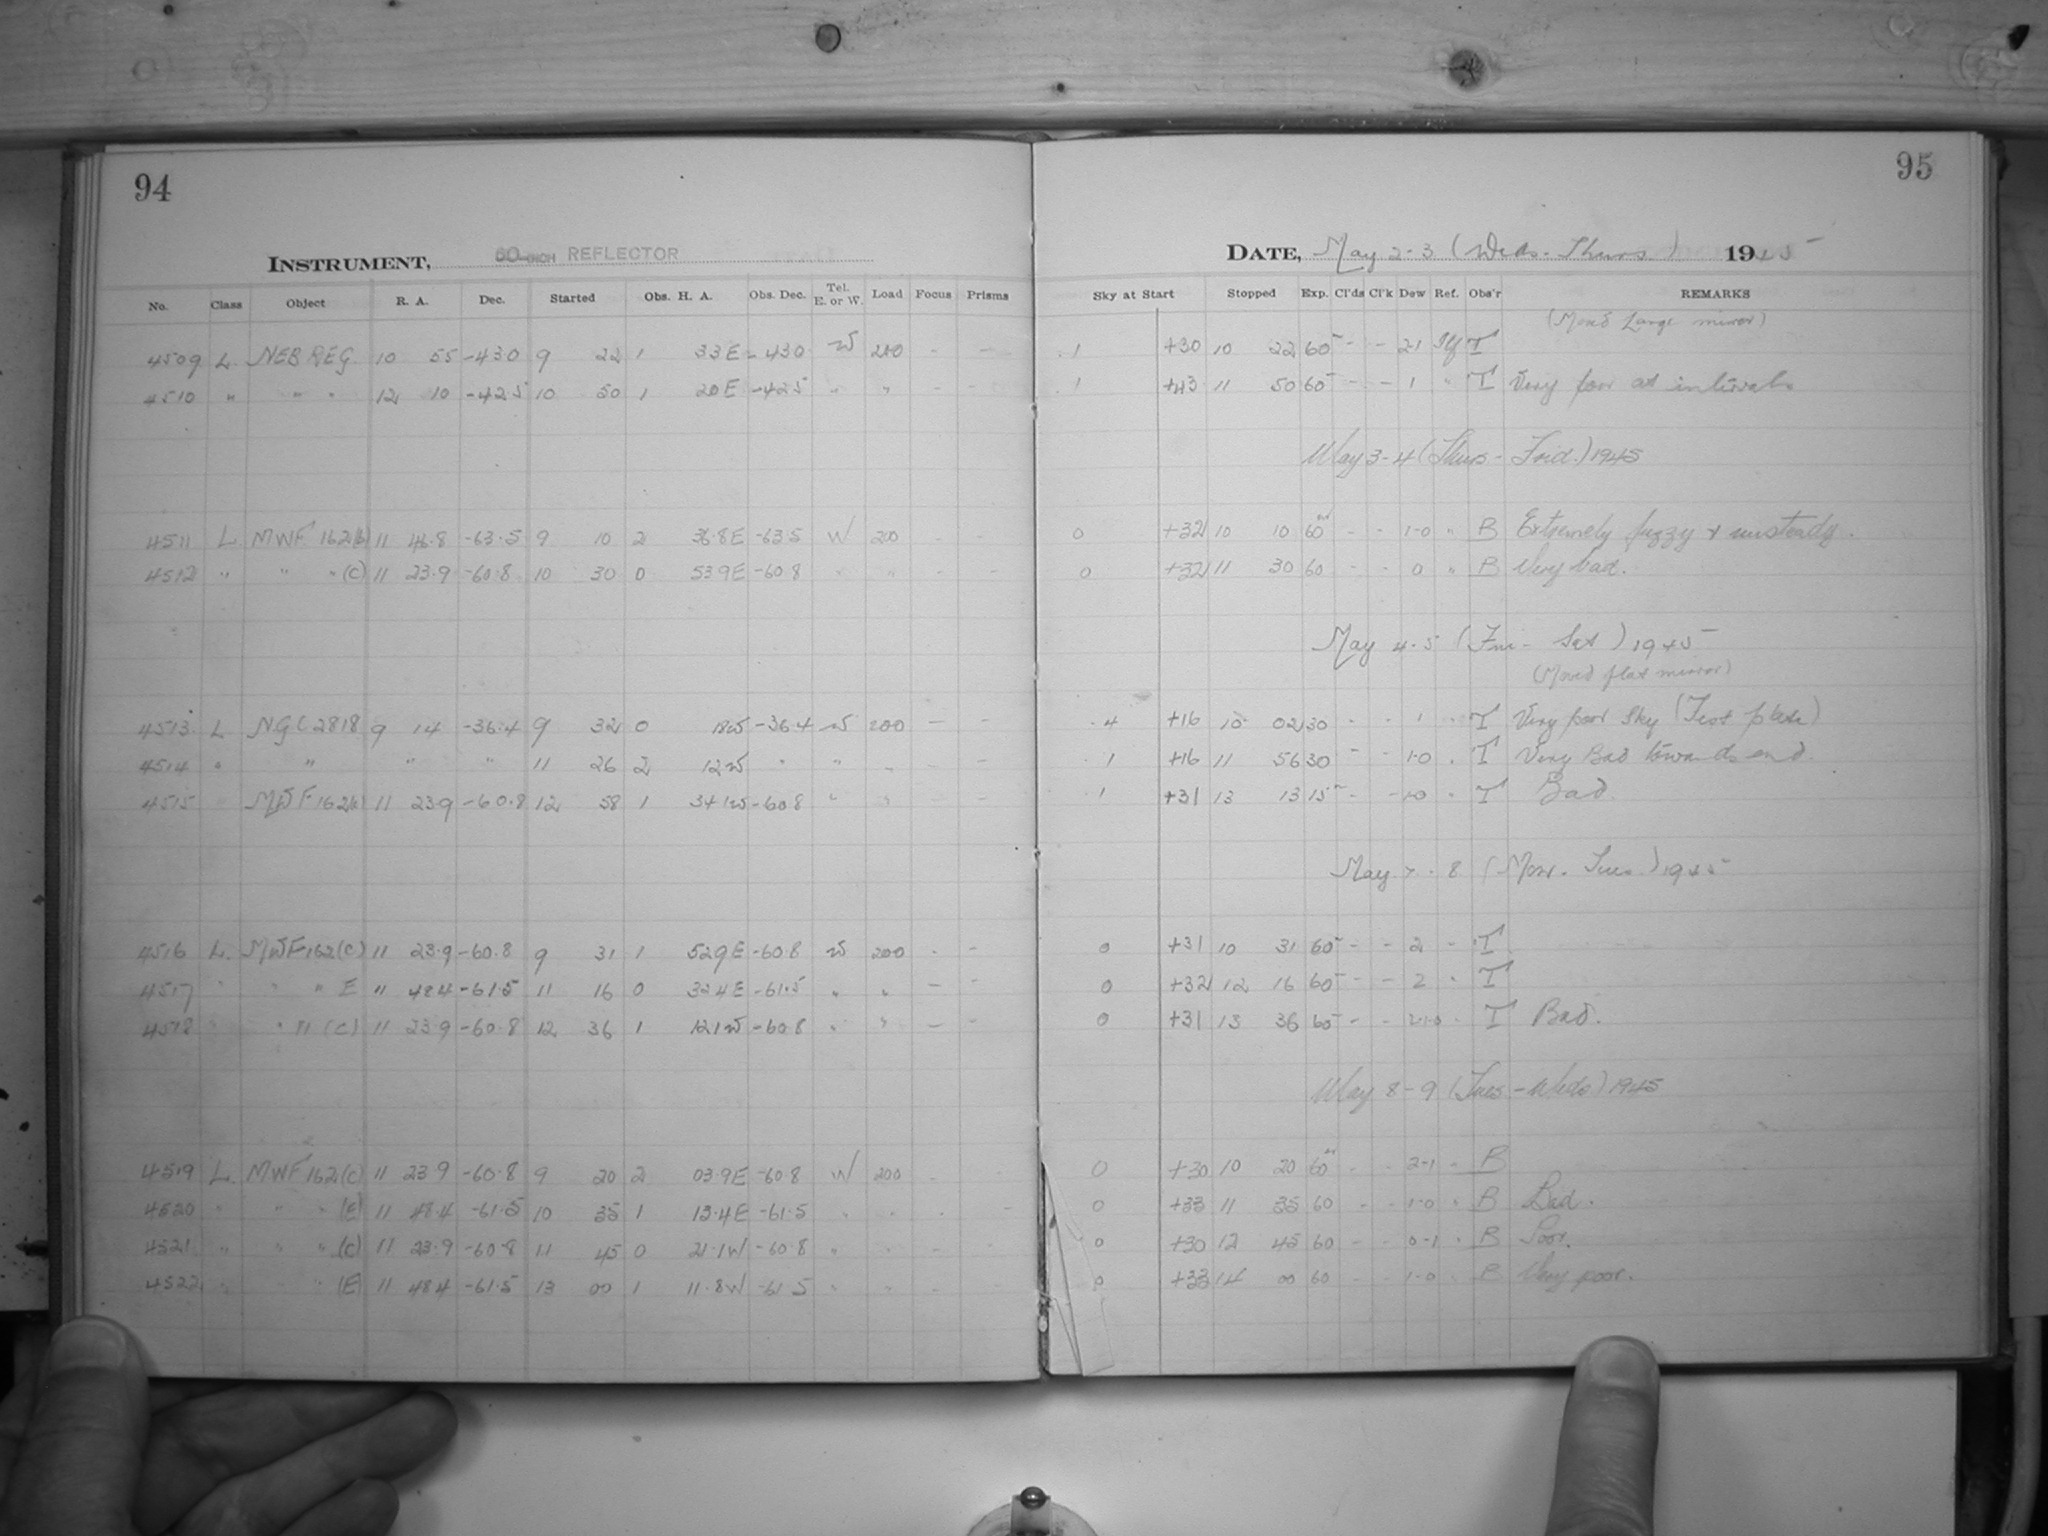 94
INSTRUMENT, 60-INCH REFLECTOR
No. Class Object R. A. Dec. Started Obs. H. A. Obs. Dec. Tel. E. or W. Load Focus Prisms
4509 L. NEB REG. 10 55 -43.0 9 22 1 33 E -43.0 W 200 - -
4510 " " " 12 10 -42.5 10 50 1 20 E -42.5 " " - -
4511 L MWF 162(b) 11 46.8 -63.5 9 10 2 36.8E -63.5 W 200 - -
4512 " " " (C) 11 23.9 -60.8 10 30 0 53.9E -60.8 " " - -
4513 L NGC 2818 9 14 -36.4 9 32 0 18W -36.4 W 200 - -
4514 " " " " 11 26 2 12W " " - -
4515 " MWF 162(c) 11 23.9 -60.8 12 58 1 34.1W -60.8 " " - -
4516 L. MWF 162(C) 11 23.9 -60.8 9 31 1 52.9E -60.8 W 200 - -
4517 " " " E " 48.4 -61.5 11 16 0 32.4E -61.5 " " - -
4518 " " " (C) 11 23.9 -60.8 12 36 1 12.1W -60.8 " " - -
4519 L. MWF 162(C) 11 23.9 -60.8 9 20 2 03.9E -60.8 W 200 -
4520 " " " (E) 11 48.4 -61.5 10 35 1 13.4E -61.5 " " - -
4521 " " " (C) 11 23.9 -60.8 11 45 0 21.1W -60.8 " " - -
4522 " " " (E) 11 48.4 -61.5 13 00 1 11.8W -61.5 " " - -
95
DATE, May 2-3 (Weds. - Thurs.) 1945
Sky at Start Stopped Exp. Cl'ds Cl'k Dew Ref. Obs'r REMARKS
(Moved Large mirror)
1 +30 10 22 60 - - 2-1 T
1 +43 11 50 60 - - 1 " T Very poor at intervals
May 3-4 (Thurs - Frid.) 1945
0 +32 10 10 60 - - 1-0 " B Extremely fuzzy & unsteady.
0 +32 11 30 60 - - 0 " B Very bad.
May 4-5 (Fri - Sat) 1945
(Moved flat mirror)
4 +16 10 02 30 - - 1 " T Very poor sky (Test plate)
1 +16 11 56 30 - 1-0 " T Very Bad towards end.
1 +31 13 13 15 - - 1-0 " T Bad
May 7-8 (Mon. - Tues.) 1945
0 +31 10 31 60 - - 2 " T
0 +32 12 16 60 - - 2 " T
0 +31 13 36 60 - - " T Bad.
May 8-9 (Tues - Weds) 1945
0 +30 10 20 60 - - 2-1 " B
0 +33 11 35 60 - - 1-0 " B Bad.
0 +30 12 45 60 - - 0-1 " B Poor.
0 +33 14 00 60 - - 1-0 " B Very poor.